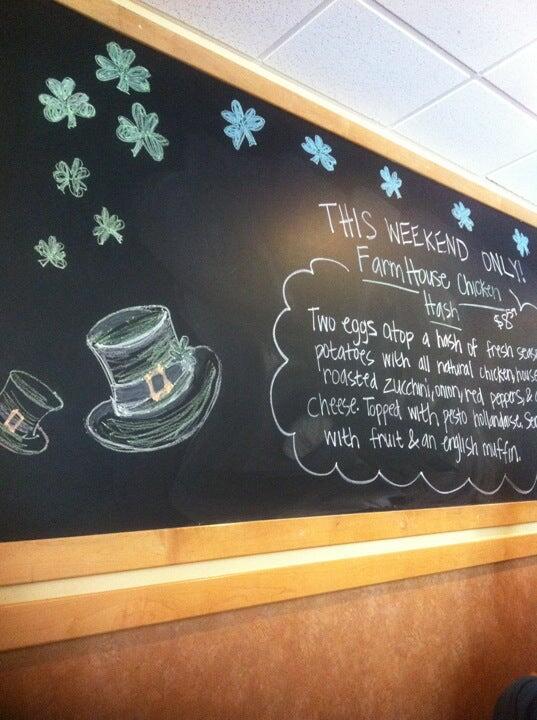 THIS WEEKEND ONLY!
FarmHouse Chicken
Hash
Two eggs atop a hash of fresh
potatoes with all natural chicken,
roasted zucchini, onion, red peppers, &
cheese. Topped with pesto hollandaise.
with fruit & an english muffin.